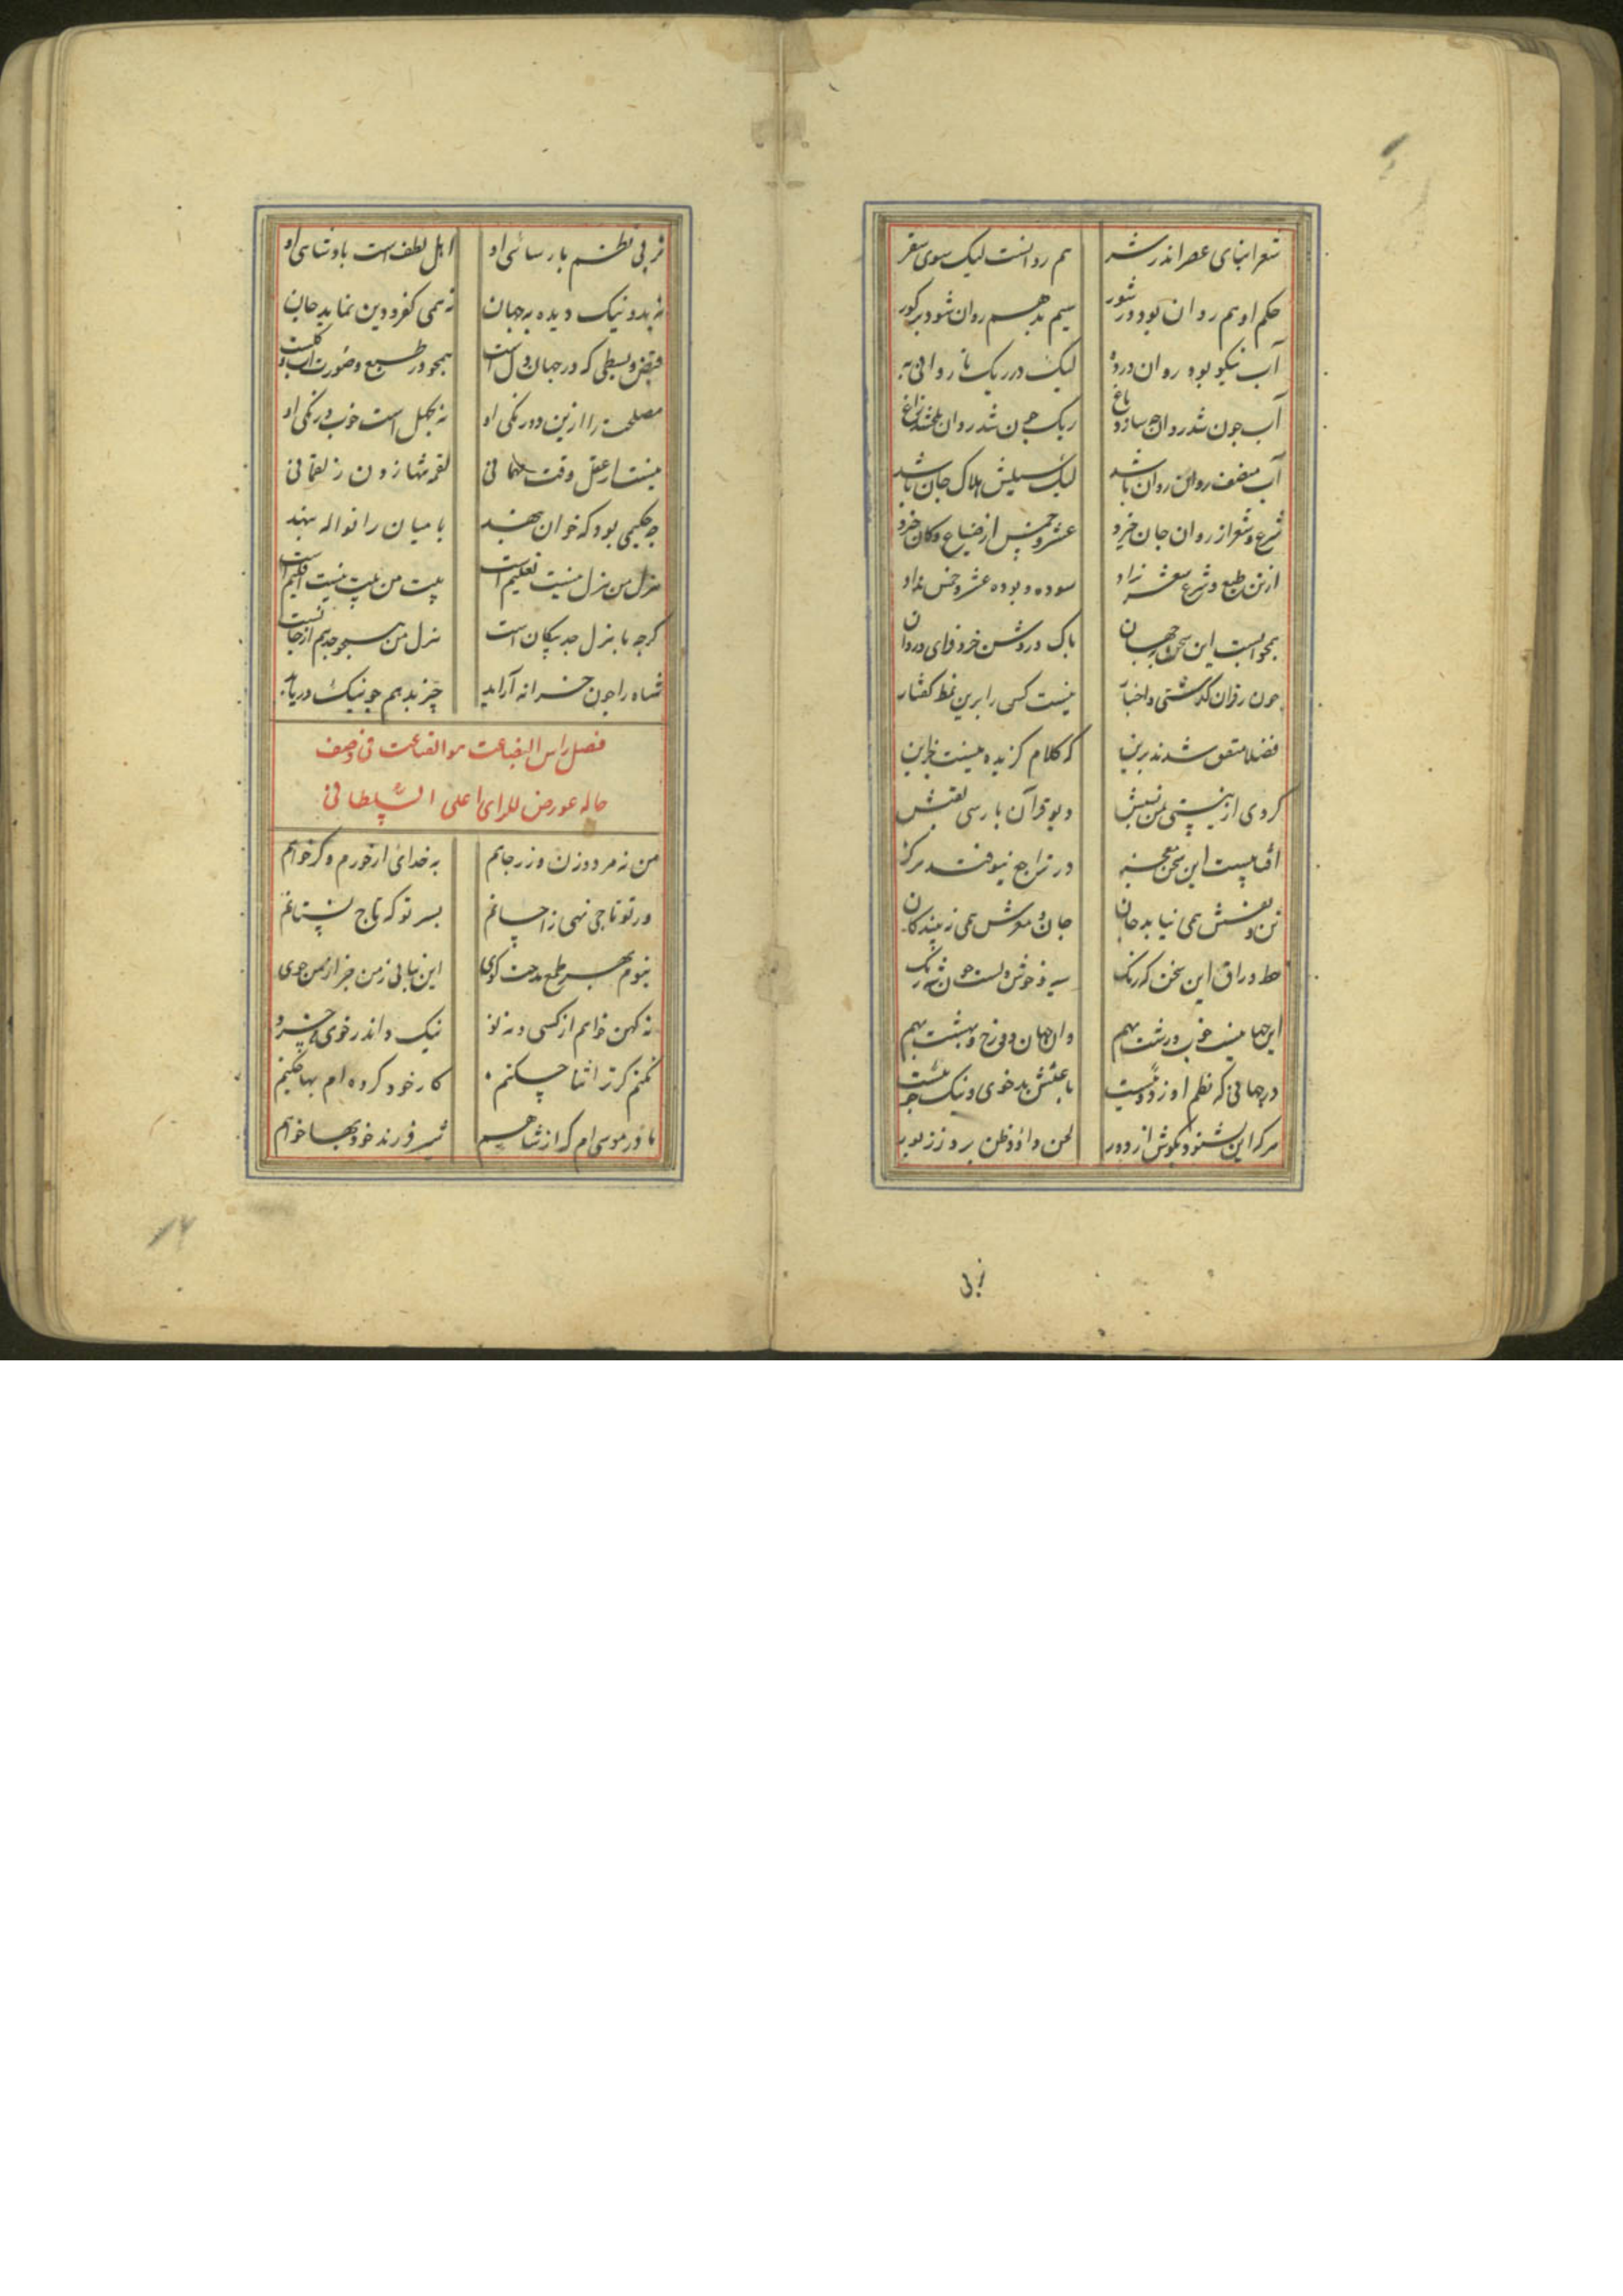 شعر ابنای عصر اندر شر هم روانست لیک سوی سقر
حکم او هم روان بود در شور سیم بد هم روان شود بر کور
آب نیکو بود روان در ده لیک در ریک ناروانی به
آب جون شد روان جه سازد باغ ریک جون شد روان
آب منصف روان روان باشد لیک سیلیش هلاک جان باشد
شرع و شعر از روان جان خیزد عشر و خمس از ضیاع و کان خیزد
از تن و طبع و شرع شعر نزاد سوده و بوده عشر و خمس نداد
بحو آبست این سخن بجهان باک و روشن خرد فزای و روان
جون ز قران گذشتی و اخبار نیست کس را برین نمط گفتار
فضلا متفق شدند برین که کلام گزیده نیست جزاین
کردی از نیستی من نسبش دیو قرآن بارسی لقبش
آفتابیست این سخن در تراجع نیوفتد هرگز
تن و نفسش همی نیابد جان جان و مغزش همی ز بیند کان
خط و راق این سخن که رنک سیه و خوش دلست جون شه زنک
این جهان نیست خوب و زشت بهم وان جهان دوزخ و بهشت بهم
در جهانی که نظم او ز دوییست باعثش بد خوی و نیک خوییست
هرکه این بشنود بگوش از دور لحن داود و ظن برد ز زبور
زبی
زبی نظم بارسائی او اهل لطف است بادشاهی او
نه بد و نیک دیده به جهان نه همی کفر و دین نماید جان
قبض و بسطی که در جهان دل است همجو در طبع و صورت آب و کلست
مصلحت را ازین دو رنکی او نه بکل است خوب و زنکی او
نیست از عقل وقت مهمانی لقمه شهازدن ز لقمانی
جه حکیمی بود که خوان بنهند با میان را نواله بنهد
هزل من هزل نیست تعلیم است بیت من بیت نیست اقلیم است
کرجه با هزل جد بیکان است هزل من همجو جد هم از جانست
شاه را جون خزانه آراید چیز بد هم جو نیک در باید
فصل راس البضاعت هو القناعت فی وصف
حاله عورض للرای اعلی السلطانی
من نه مرد و زن و زر جاهم به خدای ار خورم و کر خواهم
ور تو تاجی نهی ز احسانم بسر تو که تاج نستانم
نبوم بهر طمع مدحت کوی این نیابی ز من جز از من جوی
نه کهن خواهم از کسی و نه نو نیک داند ز خوی
نکنم کر ترا ثنا چکنم کار خود کرده ام بها چکنم
مادر موسی ام که از شاهم شیر فرزند خود بها خواهم